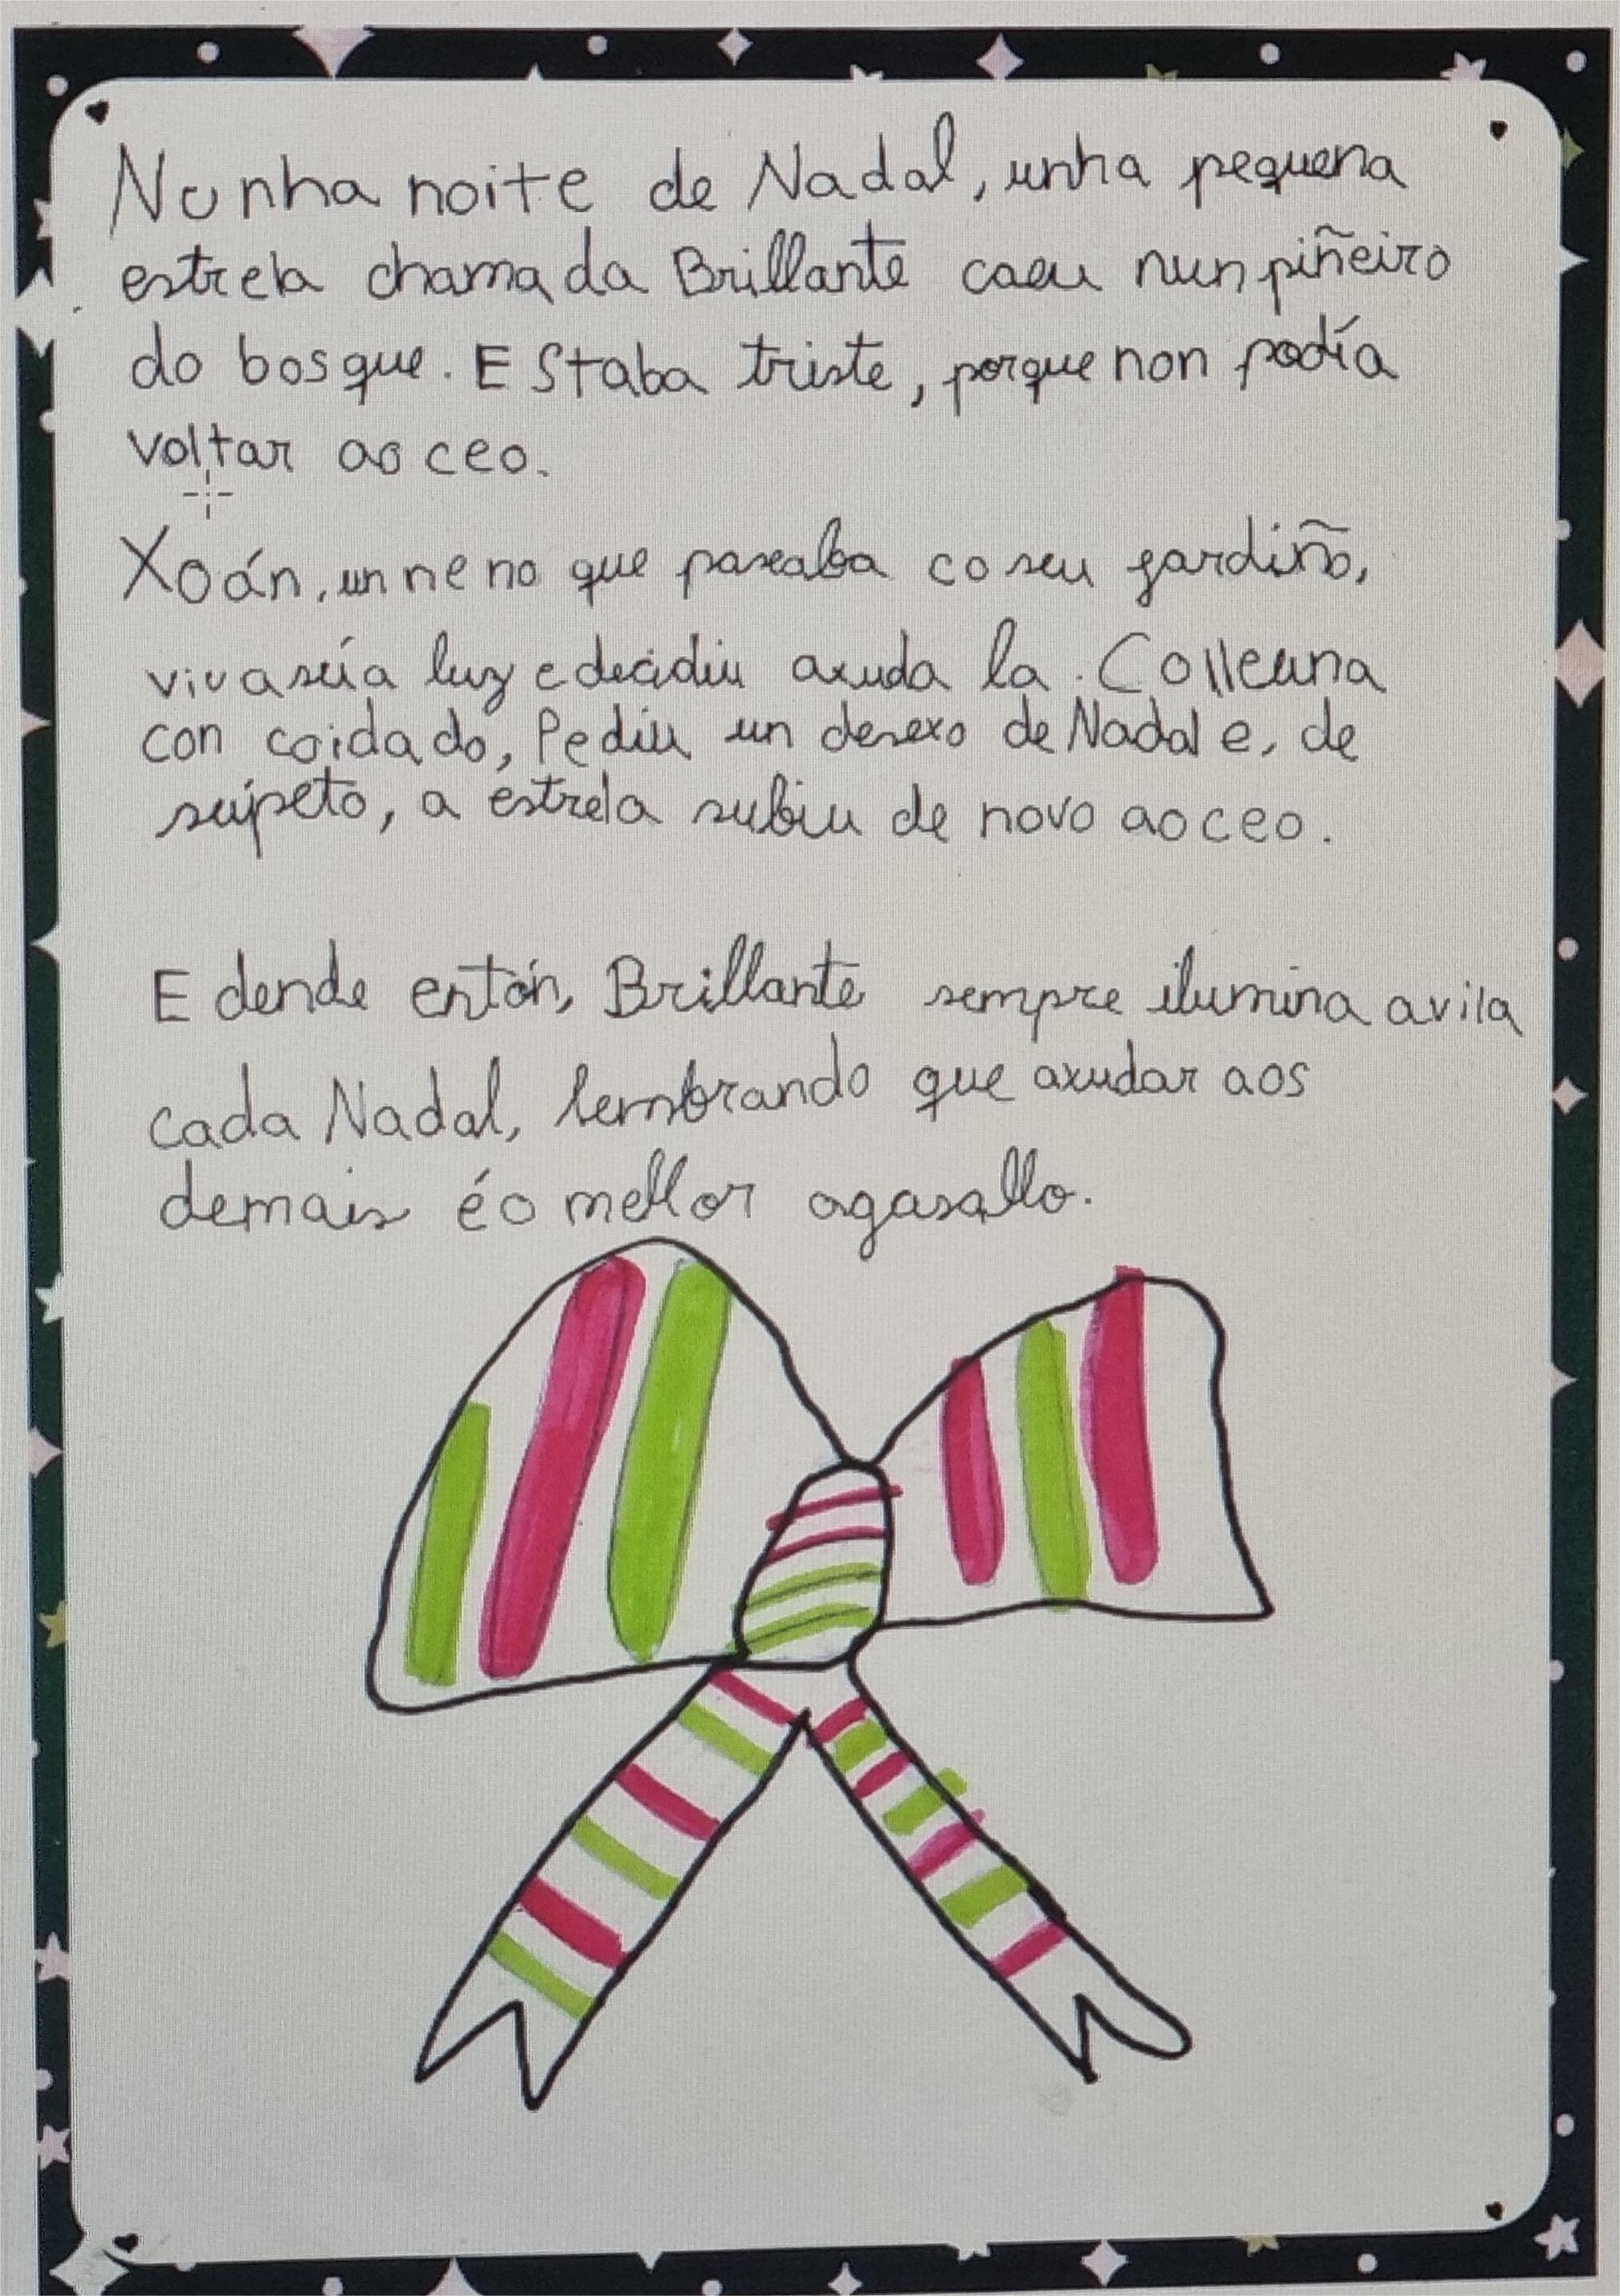 Nunha noite de Nadal, unha pequena
estrela chamada Brillante caeu nun piñeiro
do bosque. Estaba triste, porque non podía
voltar ao ceo.
Xoán, un neno que paseaba co seu
viu a súa luz e decidiu axudala. Colleuna
con coidado, Pediu un desexo de Nadal e, de
súpeto, a estrela subiu de novo ao ceo.
E dende entón, Brillante sempre ilumina a vila
cada Nadal, lembrando que axudar aos
demais é o mellor agasallo.